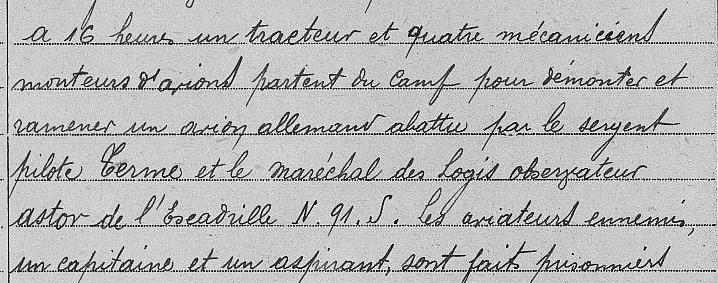 a 16 heures un tracteur et quatre mécaniciens
monteurs d'avions partent du camp pour démonter et
ramener un avion allemand abattu par le sergent
pilote Terme et le maréchal des Logis observateur
astor de l'Escadrille N. 91. S. Les aviateurs ennemis,
un capitaine et un aspirant, sont faits prisonniers